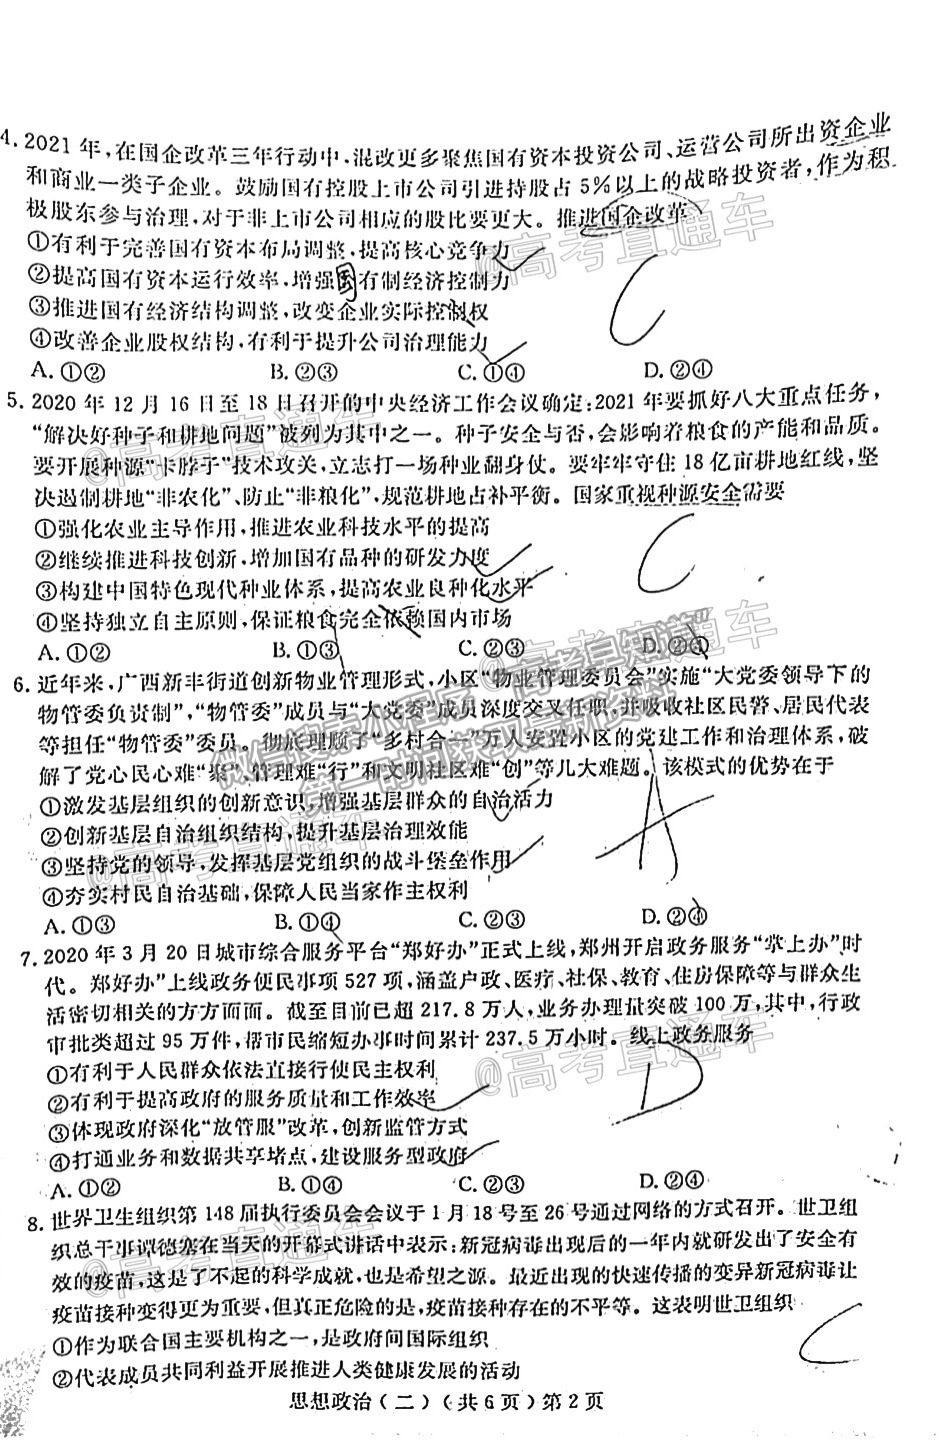 4. 2021年,在国企改革三年行动中,混改更多聚焦国有资本投资公司、运营公司所出资企业
和商业一类子企业。鼓励国有控股上市公司引进持股占5%以上的战略投资者,作为积
极股东参与治理,对于非上市公司相应的股比要更大。推进国企改革
①有利于完善国有资本布局调整,提高核心竞争力
②提高国有资本运行效率,增强国有制经济控制力
③推进国有经济结构调整,改变企业实际控制权
④改善企业股权结构,有利于提升公司治理能力
A. ①② B. ②③ C. ①④ D. ②④
C
5. 2020年12月16日至18日召开的中央经济工作会议确定:2021年要抓好八大重点任务,
“解决好种子和耕地问题”被列为其中之一。种子安全与否,会影响着粮食的产能和品质。
要开展种源“卡脖子”技术攻关,立志打一场种业翻身仗。要牢牢守住18亿亩耕地红线,坚
决遏制耕地“非农化”、防止“非粮化”,规范耕地占补平衡。国家重视种源安全需要
①强化农业主导作用,推进农业科技水平的提高
②继续推进科技创新,增加国有品种的研发力度
③构建中国特色现代种业体系,提高农业良种化水平
④坚持独立自主原则,保证粮食完全依赖国内市场
A. ①② B. ①③ C. ②③ D. ②④
C
6. 近年来,广西新丰街道创新物业管理形式,小区“物业管理委员会”实施“大党委领导下的
物管委负责制”,“物管委”成员与“大党委”成员深度交叉任职,并吸收社区民警、居民代表
等担任“物管委”委员。彻底理顺了“多村合一”万人安置小区的党建工作和治理体系,破
解了党心民心难“聚”、管理难“行”和文明社区难“创”等几大难题。该模式的优势在于
①激发基层组织的创新意识,增强基层群众的自治活力
②创新基层自治组织结构,提升基层治理效能
③坚持党的领导,发挥基层党组织的战斗堡垒作用
④夯实村民自治基础,保障人民当家作主权利
A. ①③ B. ①④ C. ②③ D. ②④
A
7. 2020年3月20日城市综合服务平台“郑好办”正式上线,郑州开启政务服务“掌上办”时
代。郑好办”上线政务便民事项527项,涵盖户政、医疗、社保、教育、住房保障等与群众生
活密切相关的方方面面。截至目前已超217.8万人,业务办理量突破100万,其中,行政
审批类超过95万件,帮市民缩短办事时间累计237.5万小时。线上政务服务
①有利于人民群众依法直接行使民主权利
②有利于提高政府的服务质量和工作效率
③体现政府深化“放管服”改革,创新监管方式
④打通业务和数据共享堵点,建设服务型政府
A. ①③ B. ①④ C. ②③ D. ②④
D
8. 世界卫生组织第148届执行委员会会议于1月18号至26号通过网络的方式召开。世卫组
织总干事谭德塞在当天的开幕式讲话中表示:新冠病毒出现后的一年内就研发出了安全有
效的疫苗,这是了不起的科学成就,也是希望之源。最近出现的快速传播的变异新冠病毒让
疫苗接种变得更为重要,但真正危险的是,疫苗接种存在的不平等。这表明世卫组织
①作为联合国主要机构之一,是政府间国际组织
②代表成员共同利益开展推进人类健康发展的活动
C
思想政治(二)(共6页)第2页
@高考直通车
@高考直通车
@高考直通车
@高考直通车
@高考直通车
@高考直通车
微信搜索小程序“高考早知道”
第一时间获取最新资料